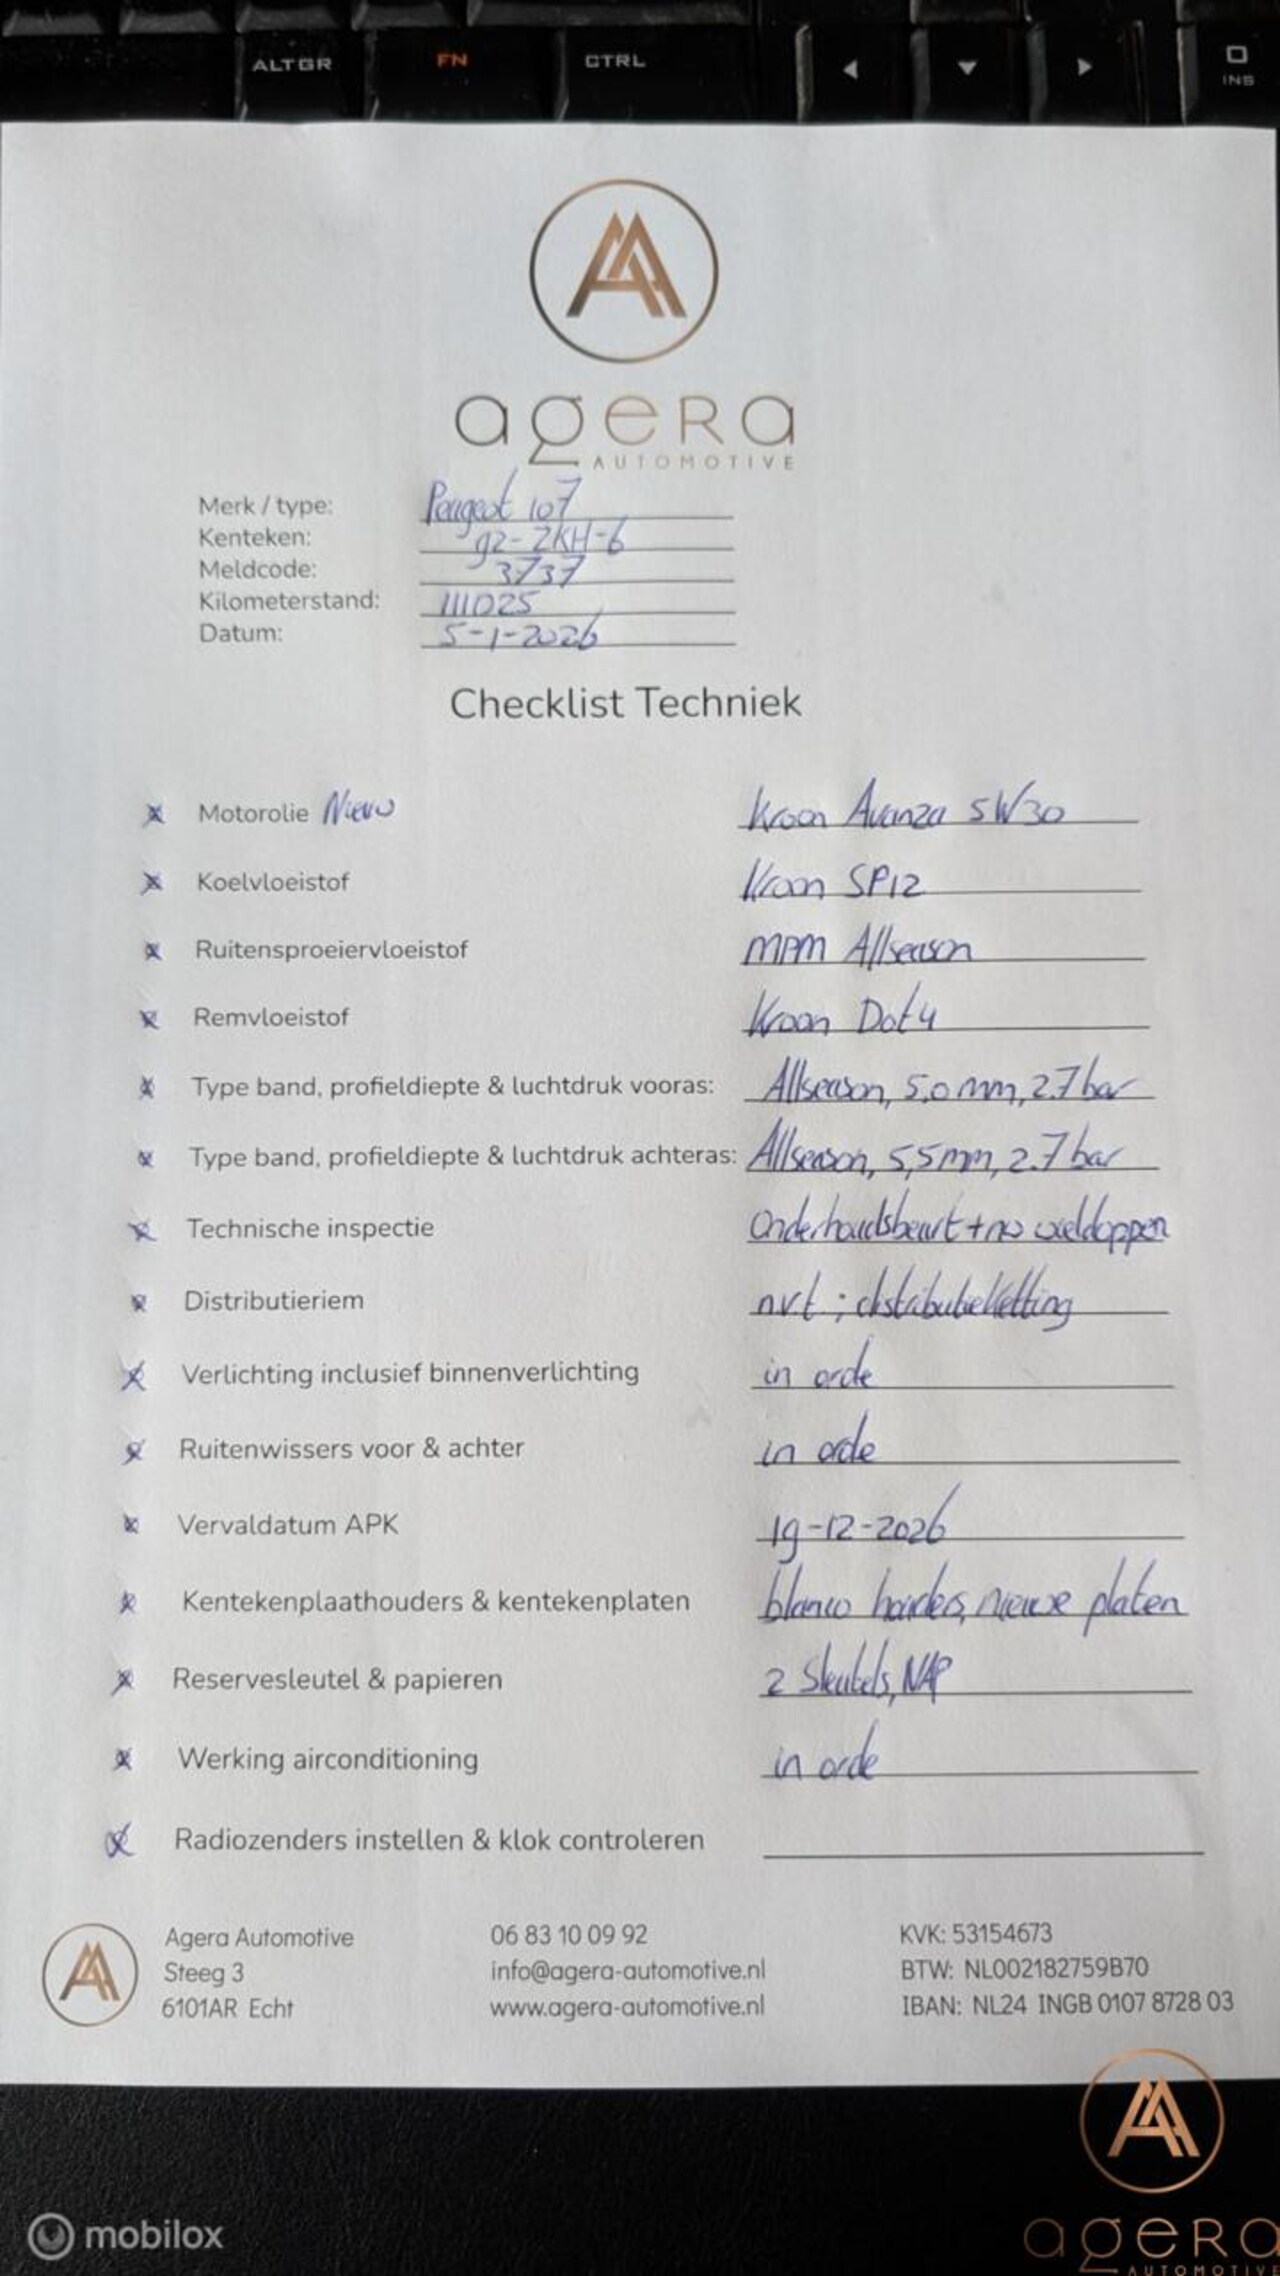 ALTGR FN CTRL INS
agera
AUTOMOTIVE
Merk / type: Peugeot 107
Kenteken: 92-ZKH-6
Meldcode: 3737
Kilometerstand: 111025
Datum: 5-1-2026
Checklist Techniek
x Motorolie Nieuw Kroon Avanza 5W30
x Koelvloeistof Kroon SP12
x Ruitensproeiervloeistof MPM Allseason
x Remvloeistof Kroon Dot4
x Type band, profieldiepte & luchtdruk vooras: Allseason, 5,0mm, 2.7 bar
x Type band, profieldiepte & luchtdruk achteras: Allseason, 5,5mm, 2.7 bar
x Technische inspectie Onderhoudsbeurt + nw wieldoppen
x Distributieriem nvt ; distributieketting
x Verlichting inclusief binnenverlichting in orde
x Ruitenwissers voor & achter in orde
x Vervaldatum APK 19-12-2026
x Kentekenplaathouders & kentekenplaten blanco houders, nieuwe platen
x Reservesleutel & papieren 2 Sleutels, NAP
x Werking airconditioning in orde
x Radiozenders instellen & klok controleren
Agera Automotive 06 83 10 09 92 KVK: 53154673
Steeg 3 info@agera-automotive.nl BTW: NL002182759B70
6101AR Echt www.agera-automotive.nl IBAN: NL24 INGB 0107 8728 03
mobilox
agera
AUTOMOTIVE